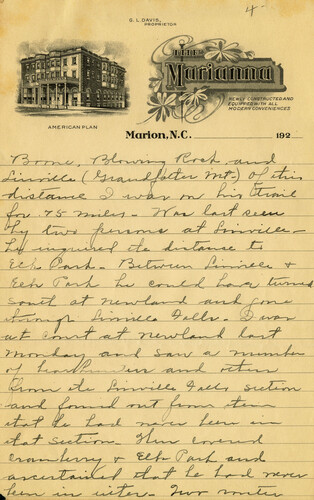 4-
G. L. DAVIS,
PROPRIETOR
THE
Marianna
NEWLY CONSTRUCTED AND
EQUIPPED WITH ALL
MODERN CONVENIENCES
AMERICAN PLAN
Marion, N.C. 192
Boone, Blowing Rock and
Linville (Grandfather Mt.) Of this
distance I was on his trail
for 75 miles. Was last seen
by two persons at Linville -
he inquired the distance to
Elk Park. Between Linville &
Elk Park he could have turned
South at Newland and gone
through Linville Falls. I was
at Court at Newland last
Monday and saw a number
of and
from the Linville Falls section
and found out from them
that he had never been in
that section. Then covered
Cranberry & Elk Park and
ascertained that he had never
been in either. Two